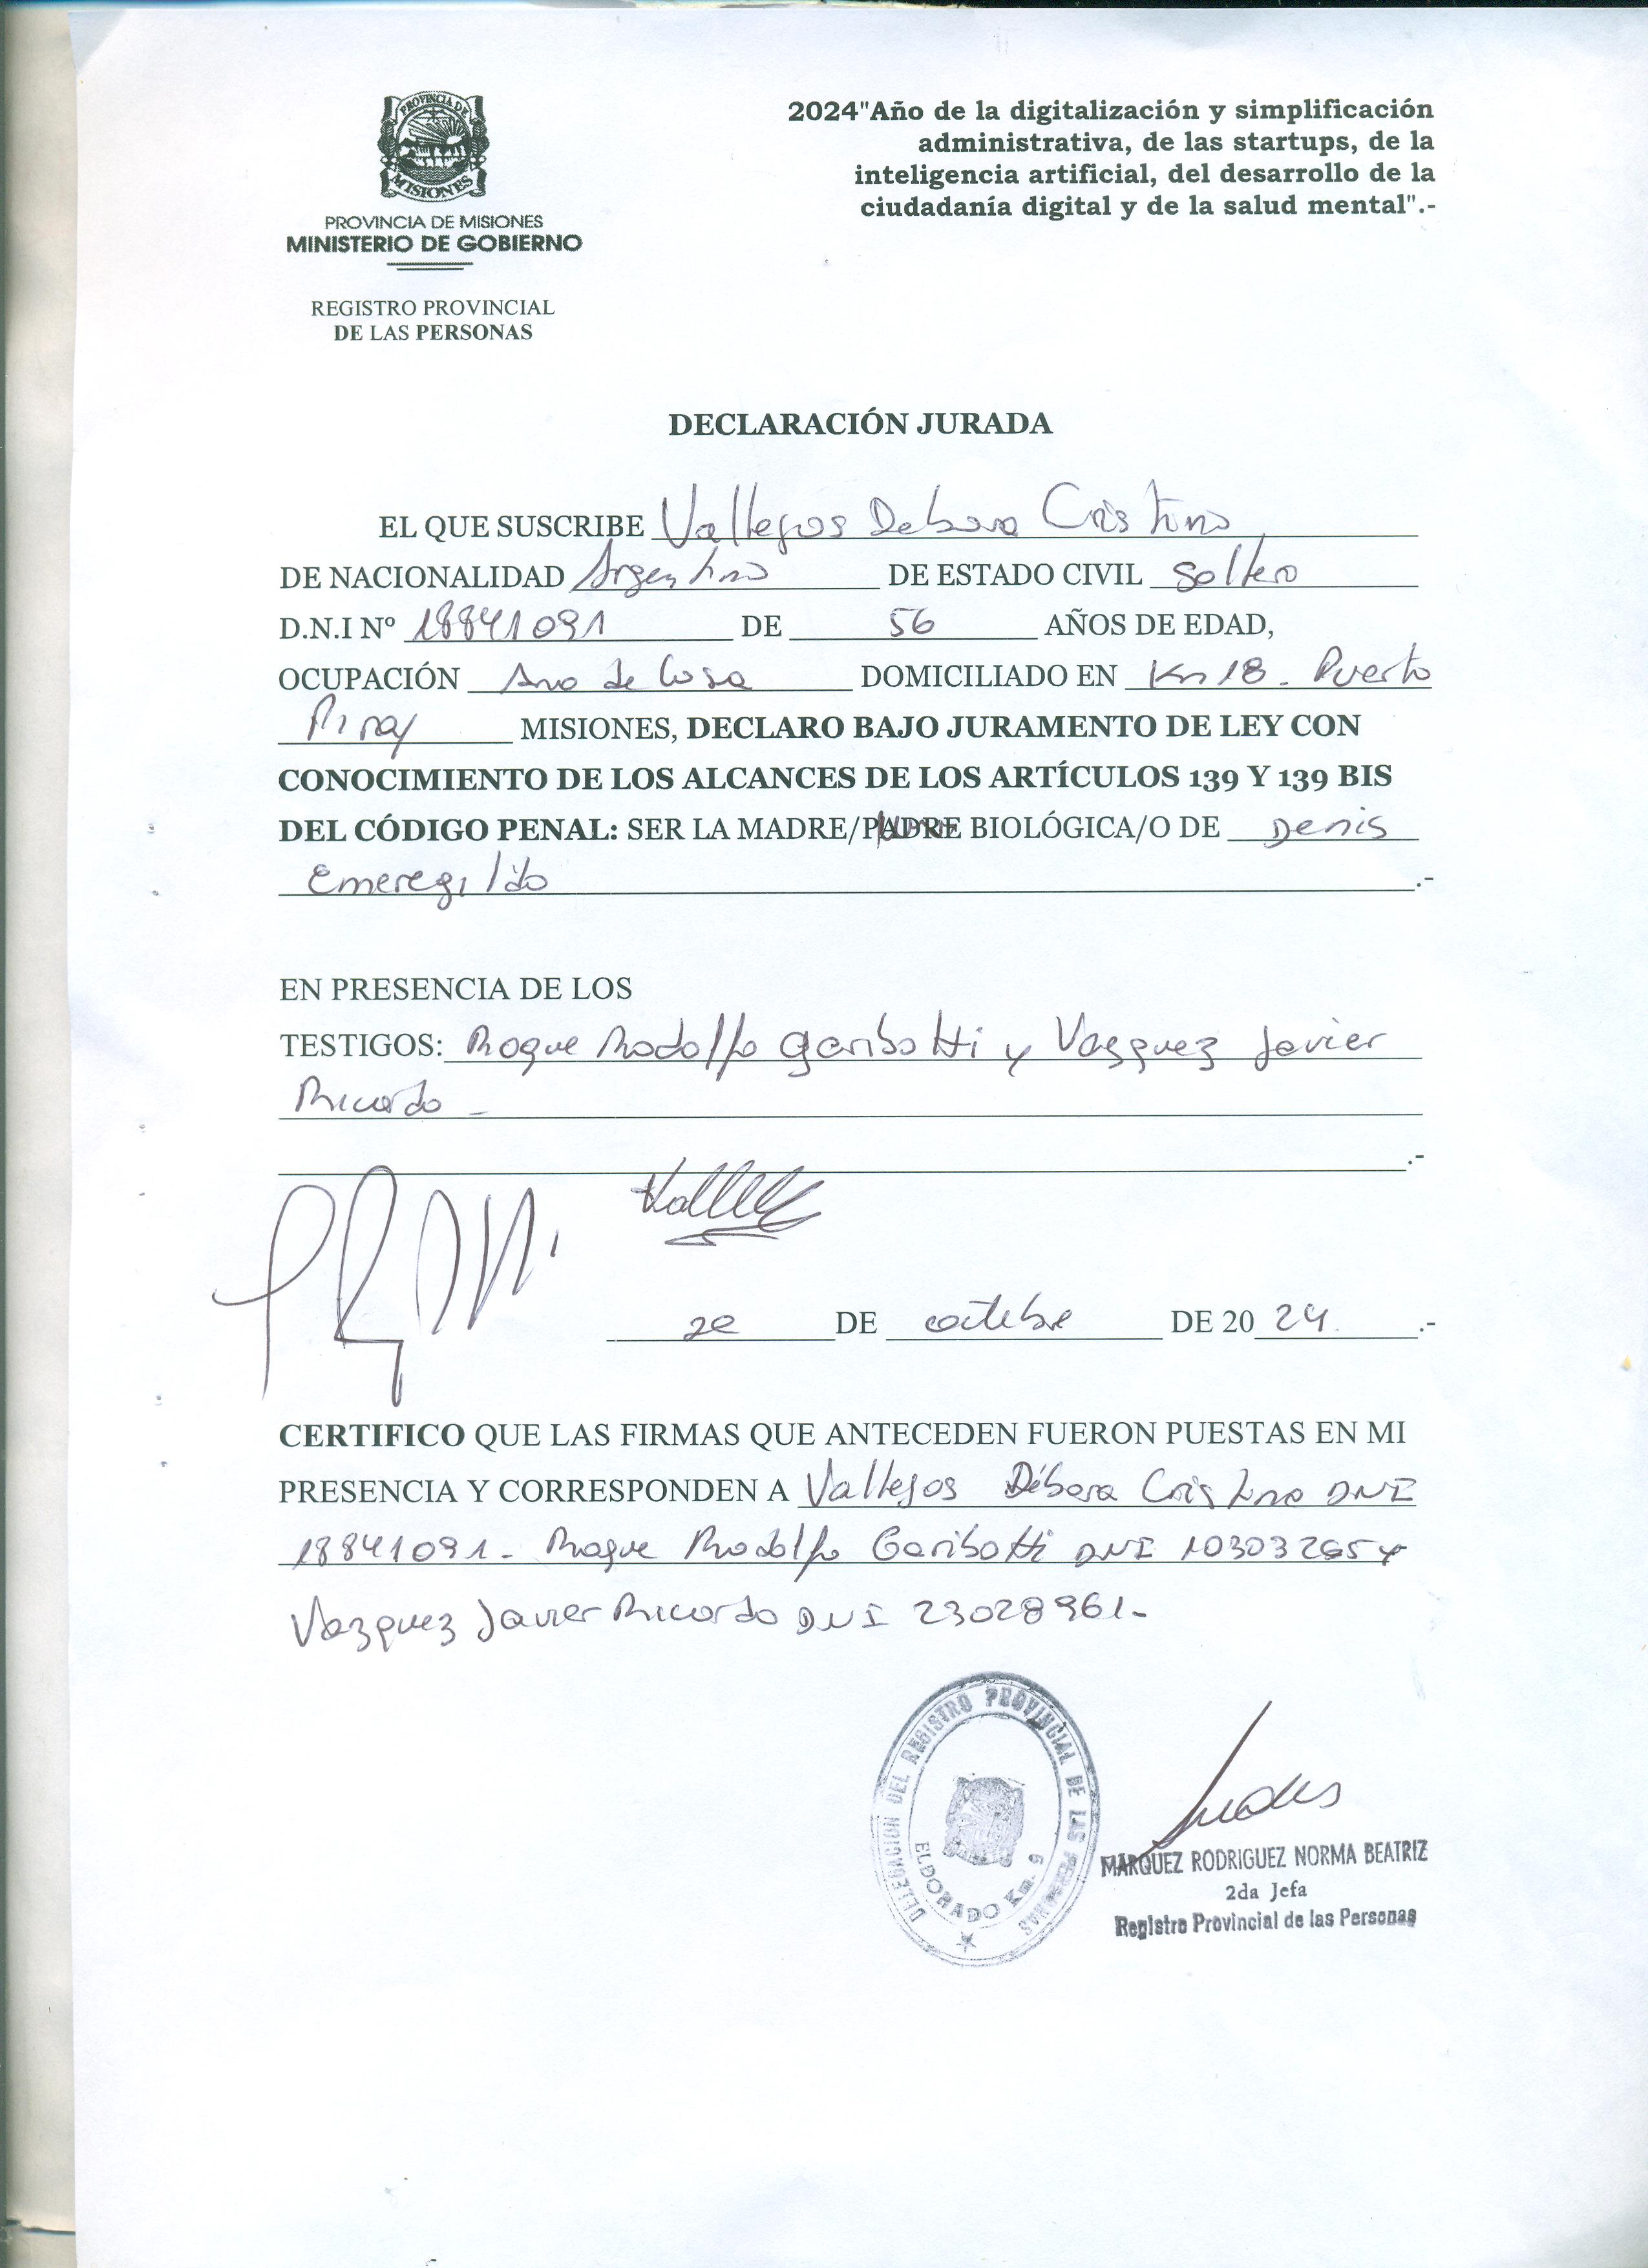 PROVINCIA DE
MISIONES
PROVINCIA DE MISIONES
MINISTERIO DE GOBIERNO
REGISTRO PROVINCIAL
DE LAS PERSONAS
2024"Año de la digitalización y simplificación
administrativa, de las startups, de la
inteligencia artificial, del desarrollo de la
ciudadanía digital y de la salud mental".-
DECLARACIÓN JURADA
EL QUE SUSCRIBE Vallejos Debora Cristina
DE NACIONALIDAD Argentina DE ESTADO CIVIL Soltera
D.N.I Nº 18841091 DE 56 AÑOS DE EDAD,
OCUPACIÓN Ama de Casa DOMICILIADO EN Km 18 - Puerto
Piray MISIONES, DECLARO BAJO JURAMENTO DE LEY CON
CONOCIMIENTO DE LOS ALCANCES DE LOS ARTÍCULOS 139 Y 139 BIS
DEL CÓDIGO PENAL: SER LA MADRE/PADRE BIOLÓGICA/O DE Denis
Emeregildo .-
EN PRESENCIA DE LOS
TESTIGOS: Roque Rodolfo Garibotti y Vazquez Javier
Ricardo -
.-
DE octubre DE 2024 .-
CERTIFICO QUE LAS FIRMAS QUE ANTECEDEN FUERON PUESTAS EN MI
PRESENCIA Y CORRESPONDEN A Vallejos Débora Cristina DNI
18841091- Roque Rodolfo Garibotti DNI 10303265 y
Vazquez Javier Ricardo DNI 23028961-
DELEGACION DEL REGISTRO PROVINCIAL DE LAS PERSONAS
ELDORADO Km. 9
MARQUEZ RODRIGUEZ NORMA BEATRIZ
2da Jefa
Registro Provincial de las Personas